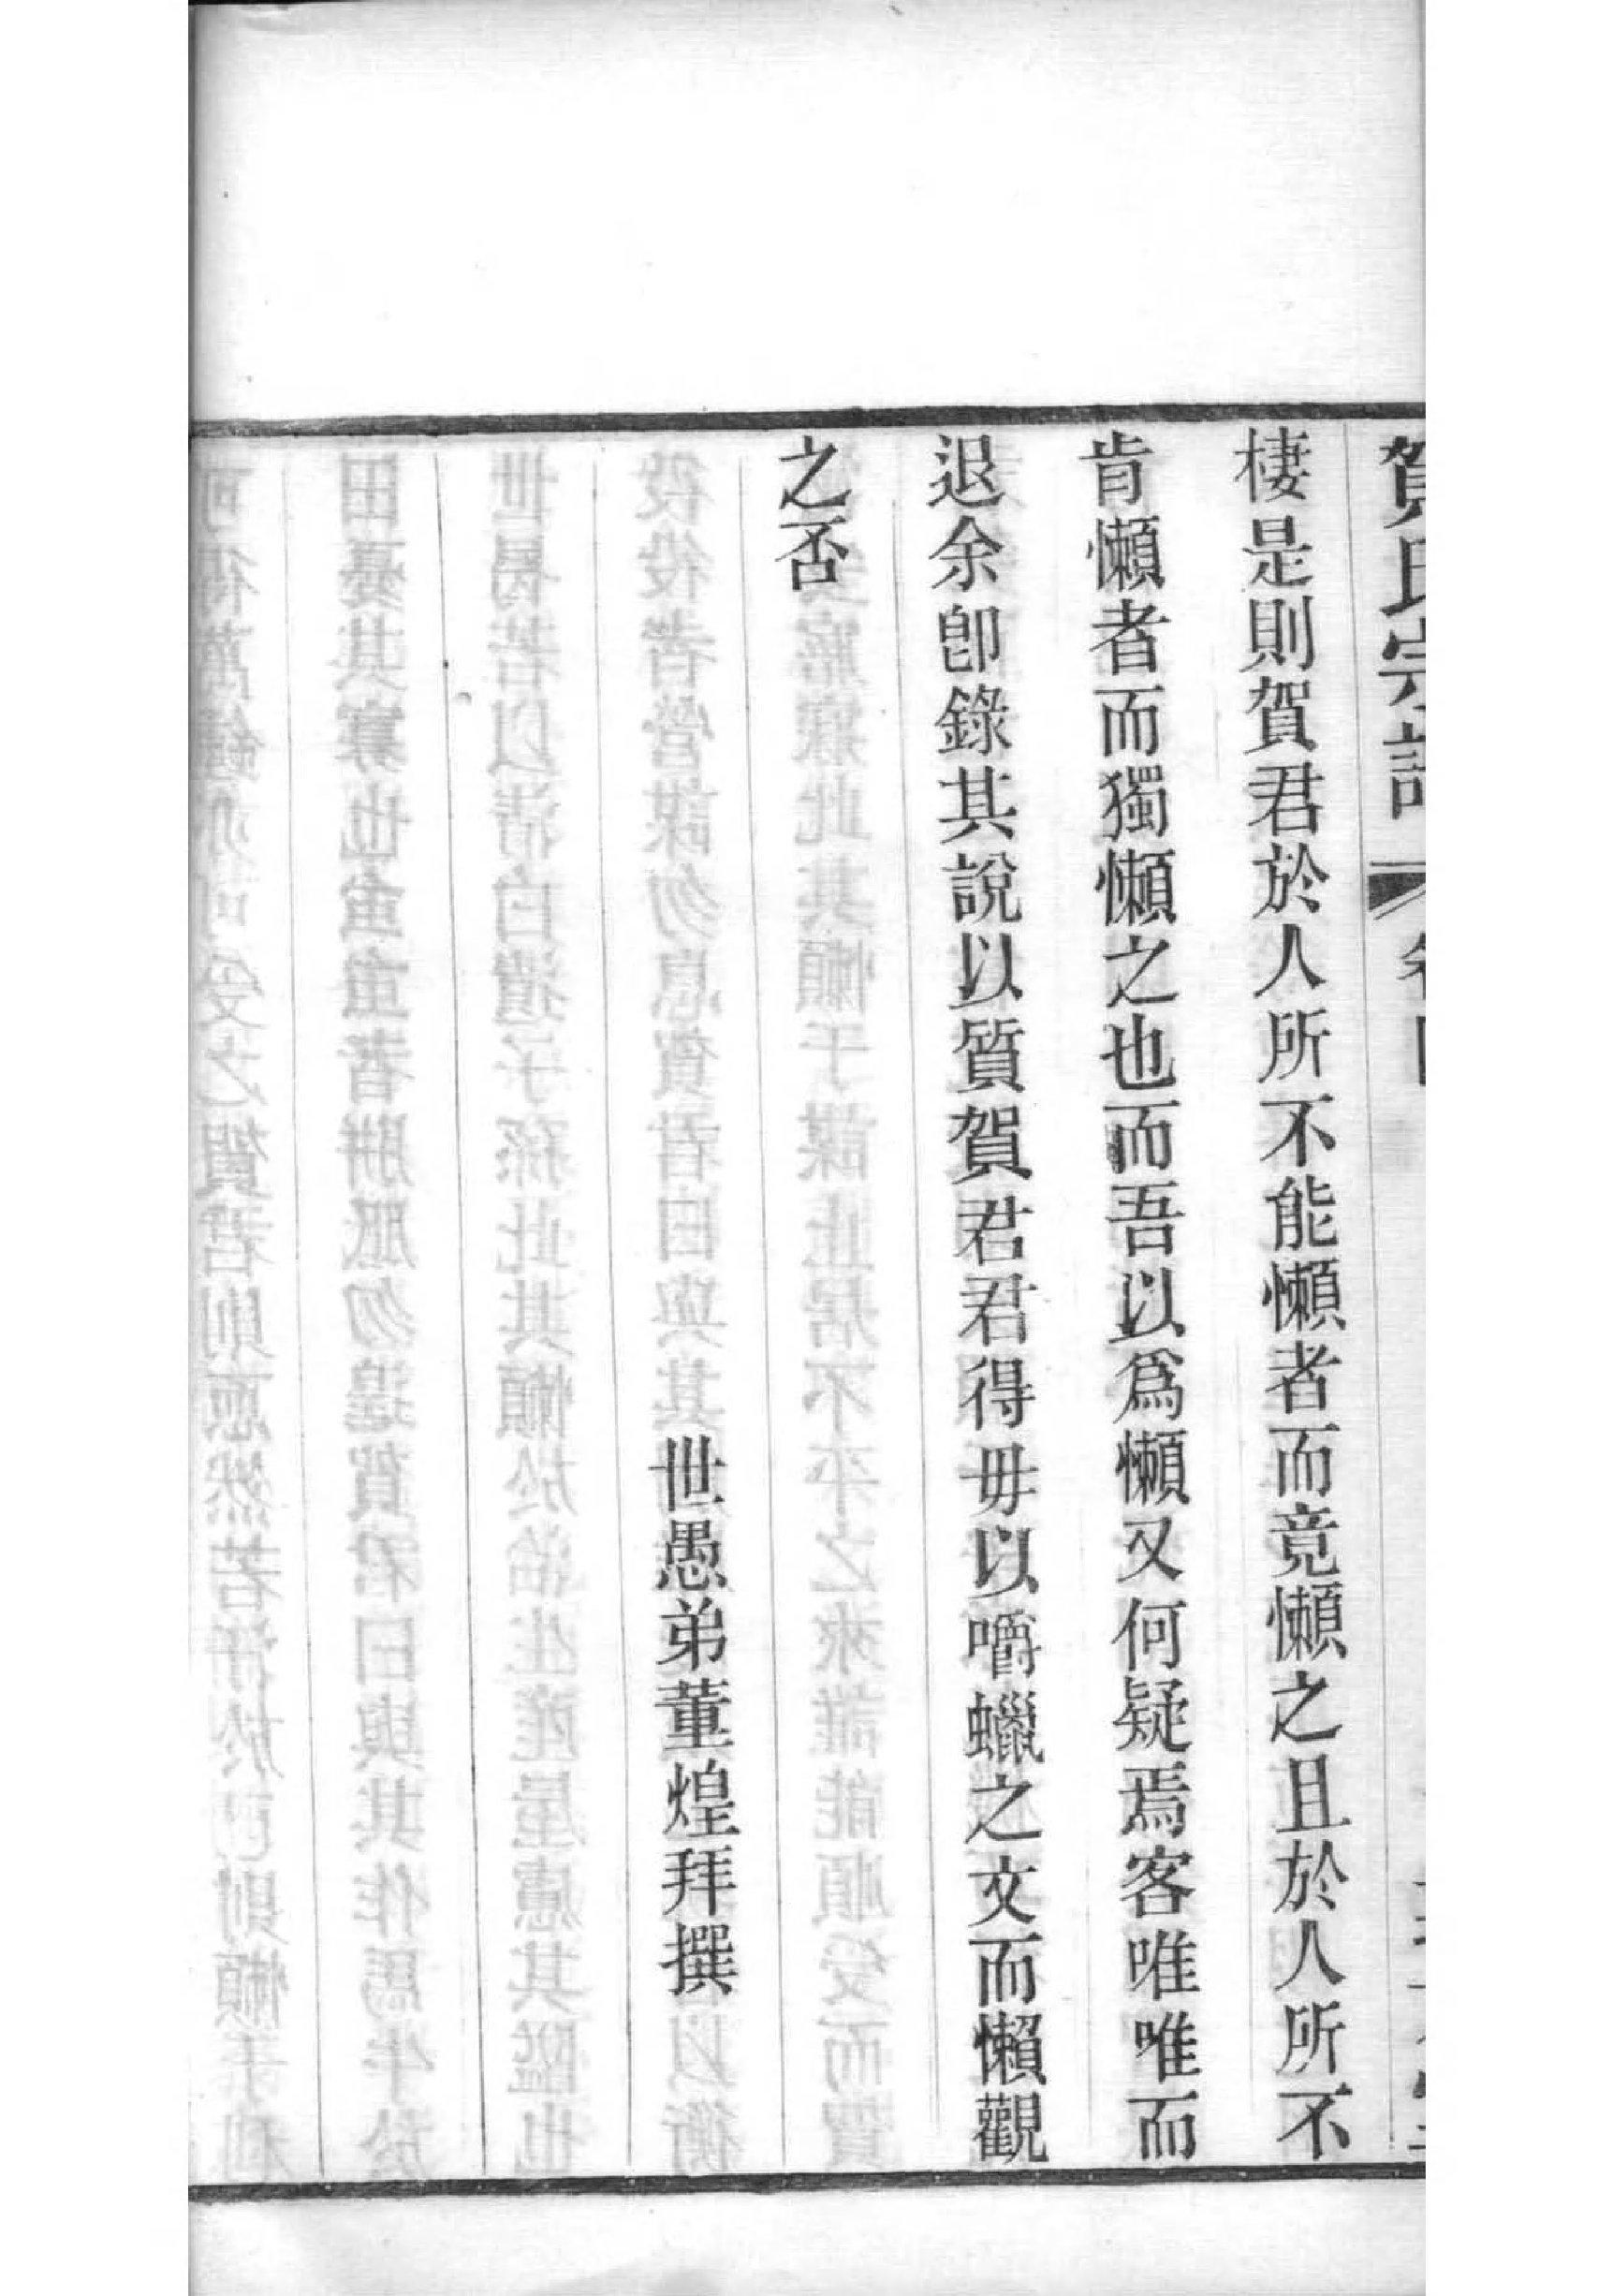 賀氏宗譜
棲是則賀君於人所不能懶者而竟懶之且於人所不
肯懶者而獨懶之也而吾以為懶又何疑焉客唯唯而
退余卽錄其說以質賀君君得毋以嚼蠟之文而懶觀
之否
世愚弟董煌拜撰